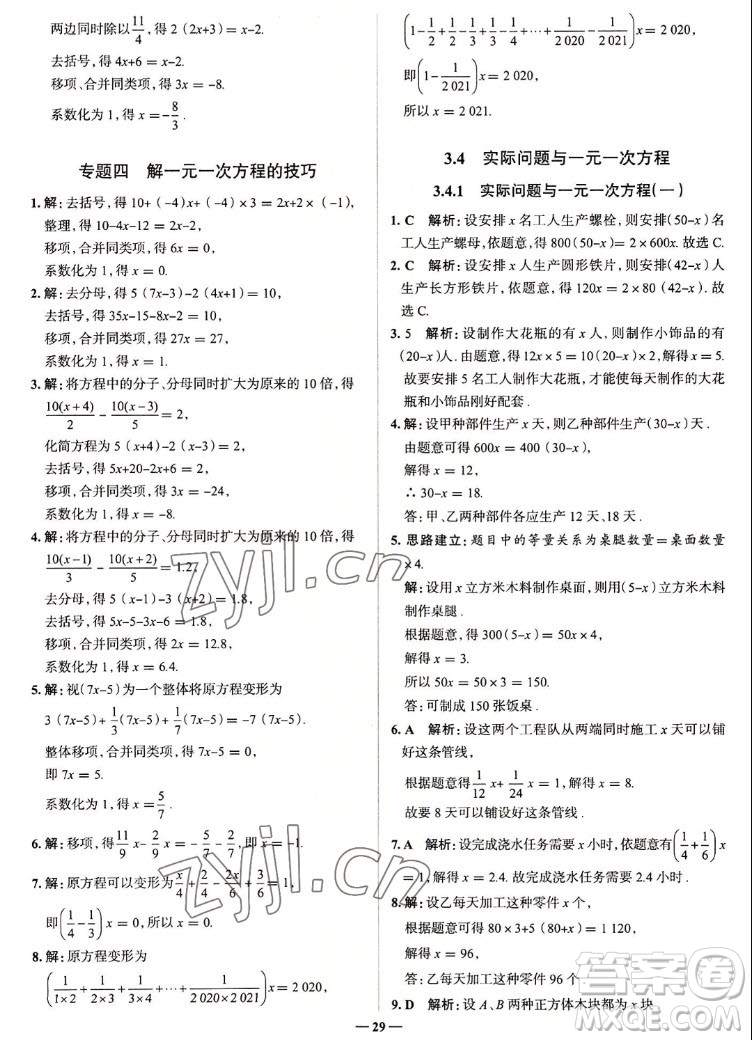 两边同时除以11/4,得 2(2x+3)=x-2.
去括号,得 4x+6=x-2.
移项、合并同类项,得 3x=-8.
系数化为 1,得 x=-8/3.
专题四 解一元一次方程的技巧
1. 解:去括号,得 10+(-4)x+(-4)×3=2x+2×(-1),
整理,得 10-4x-12=2x-2,
移项,合并同类项,得 6x=0,
系数化为 1,得 x=0.
2. 解:去分母,得 5(7x-3)-2(4x+1)=10,
去括号,得 35x-15-8x-2=10,
移项,合并同类项,得 27x=27,
系数化为 1,得 x=1.
3. 解:将方程中的分子、分母同时扩大为原来的 10 倍,得
10(x+4)/2-10(x-3)/5=2,
化简方程为 5(x+4)-2(x-3)=2,
去括号,得 5x+20-2x+6=2,
移项,合并同类项,得 3x=-24,
系数化为 1,得 x=-8.
4. 解:将方程中的分子、分母同时扩大为原来的 10 倍,得
10(x-1)/3-10(x+2)/5=1.2,
去分母,得 5(x-1)-3(x+2)=1.8,
去括号,得 5x-5-3x-6=1.8,
移项,合并同类项,得 2x=12.8,
系数化为 1,得 x=6.4.
5. 解:视(7x-5)为一个整体将原方程变形为
3(7x-5)+1/3(7x-5)+1/7(7x-5)=-7(7x-5).
整体移项,合并同类项,得 7x-5=0,
即 7x=5.
系数化为 1,得 x=5/7.
6. 解:移项,得11/9x-2/9x=-5/7-2/7,即 x=-1.
7. 解:原方程可以变形为x/4+2/4-2x/6+3/6=1,
即(1/4-1/3)x=0,所以 x=0.
8. 解:原方程变形为
(1/1×2+1/2×3+1/3×4+…+1/2 020×2 021)x=2 020,
(1-1/2+1/2-1/3+1/3-1/4+…+1/2 020-1/2 021)x=2 020,
即(1-1/2 021)x=2 020,
所以 x=2 021.
3.4 实际问题与一元一次方程
3.4.1 实际问题与一元一次方程(一)
1. C 解析:设安排 x 名工人生产螺栓,则安排(50-x)名
工人生产螺母,依题意,得 800(50-x)=2×600x. 故选 C.
2. C 解析:设安排 x 人生产圆形铁片,则安排(42-x)人
生产长方形铁片,依题意,得 120x=2×80(42-x). 故
选 C.
3. 5 解析:设制作大花瓶的有 x 人,则制作小饰品的有
(20-x)人. 由题意,得 12x×5=10(20-x)×2,解得 x=5.
故要安排 5 名工人制作大花瓶,才能使每天制作的大花
瓶和小饰品刚好配套.
4. 解:设甲种部件生产 x 天,则乙种部件生产(30-x)天.
由题意可得 600x=400(30-x),
解得 x=12,
∴ 30-x=18.
答:甲、乙两种部件各应生产 12 天、18 天.
5. 思路建立:题目中的等量关系为桌腿数量=桌面数量
×4.
解:设用 x 立方米木料制作桌面,则用(5-x)立方米木料
制作桌腿.
根据题意,得 300(5-x)=50x×4,
解得 x=3.
所以 50x=50×3=150.
答:可制成 150 张饭桌.
6. A 解析:设这两个工程队从两端同时施工 x 天可以铺
好这条管线,
根据题意得1/12x+1/24x=1,解得 x=8.
故要 8 天可以铺设好这条管线.
7. A 解析:设完成浇水任务需要 x 小时,依题意有(1/4+1/6)x
=1,解得 x=2.4. 故完成浇水任务需要 2.4 小时.
8. 解:设乙每天加工这种零件 x 个,
根据题意,得 80×3+5(80+x)=1 120,
解得 x=96,
答:乙每天加工这种零件 96 个.
9. D 解析:设 A、B 两种正方体木块都为 x 块,
29
zyjl.cn
zyjl.cn
答案圈